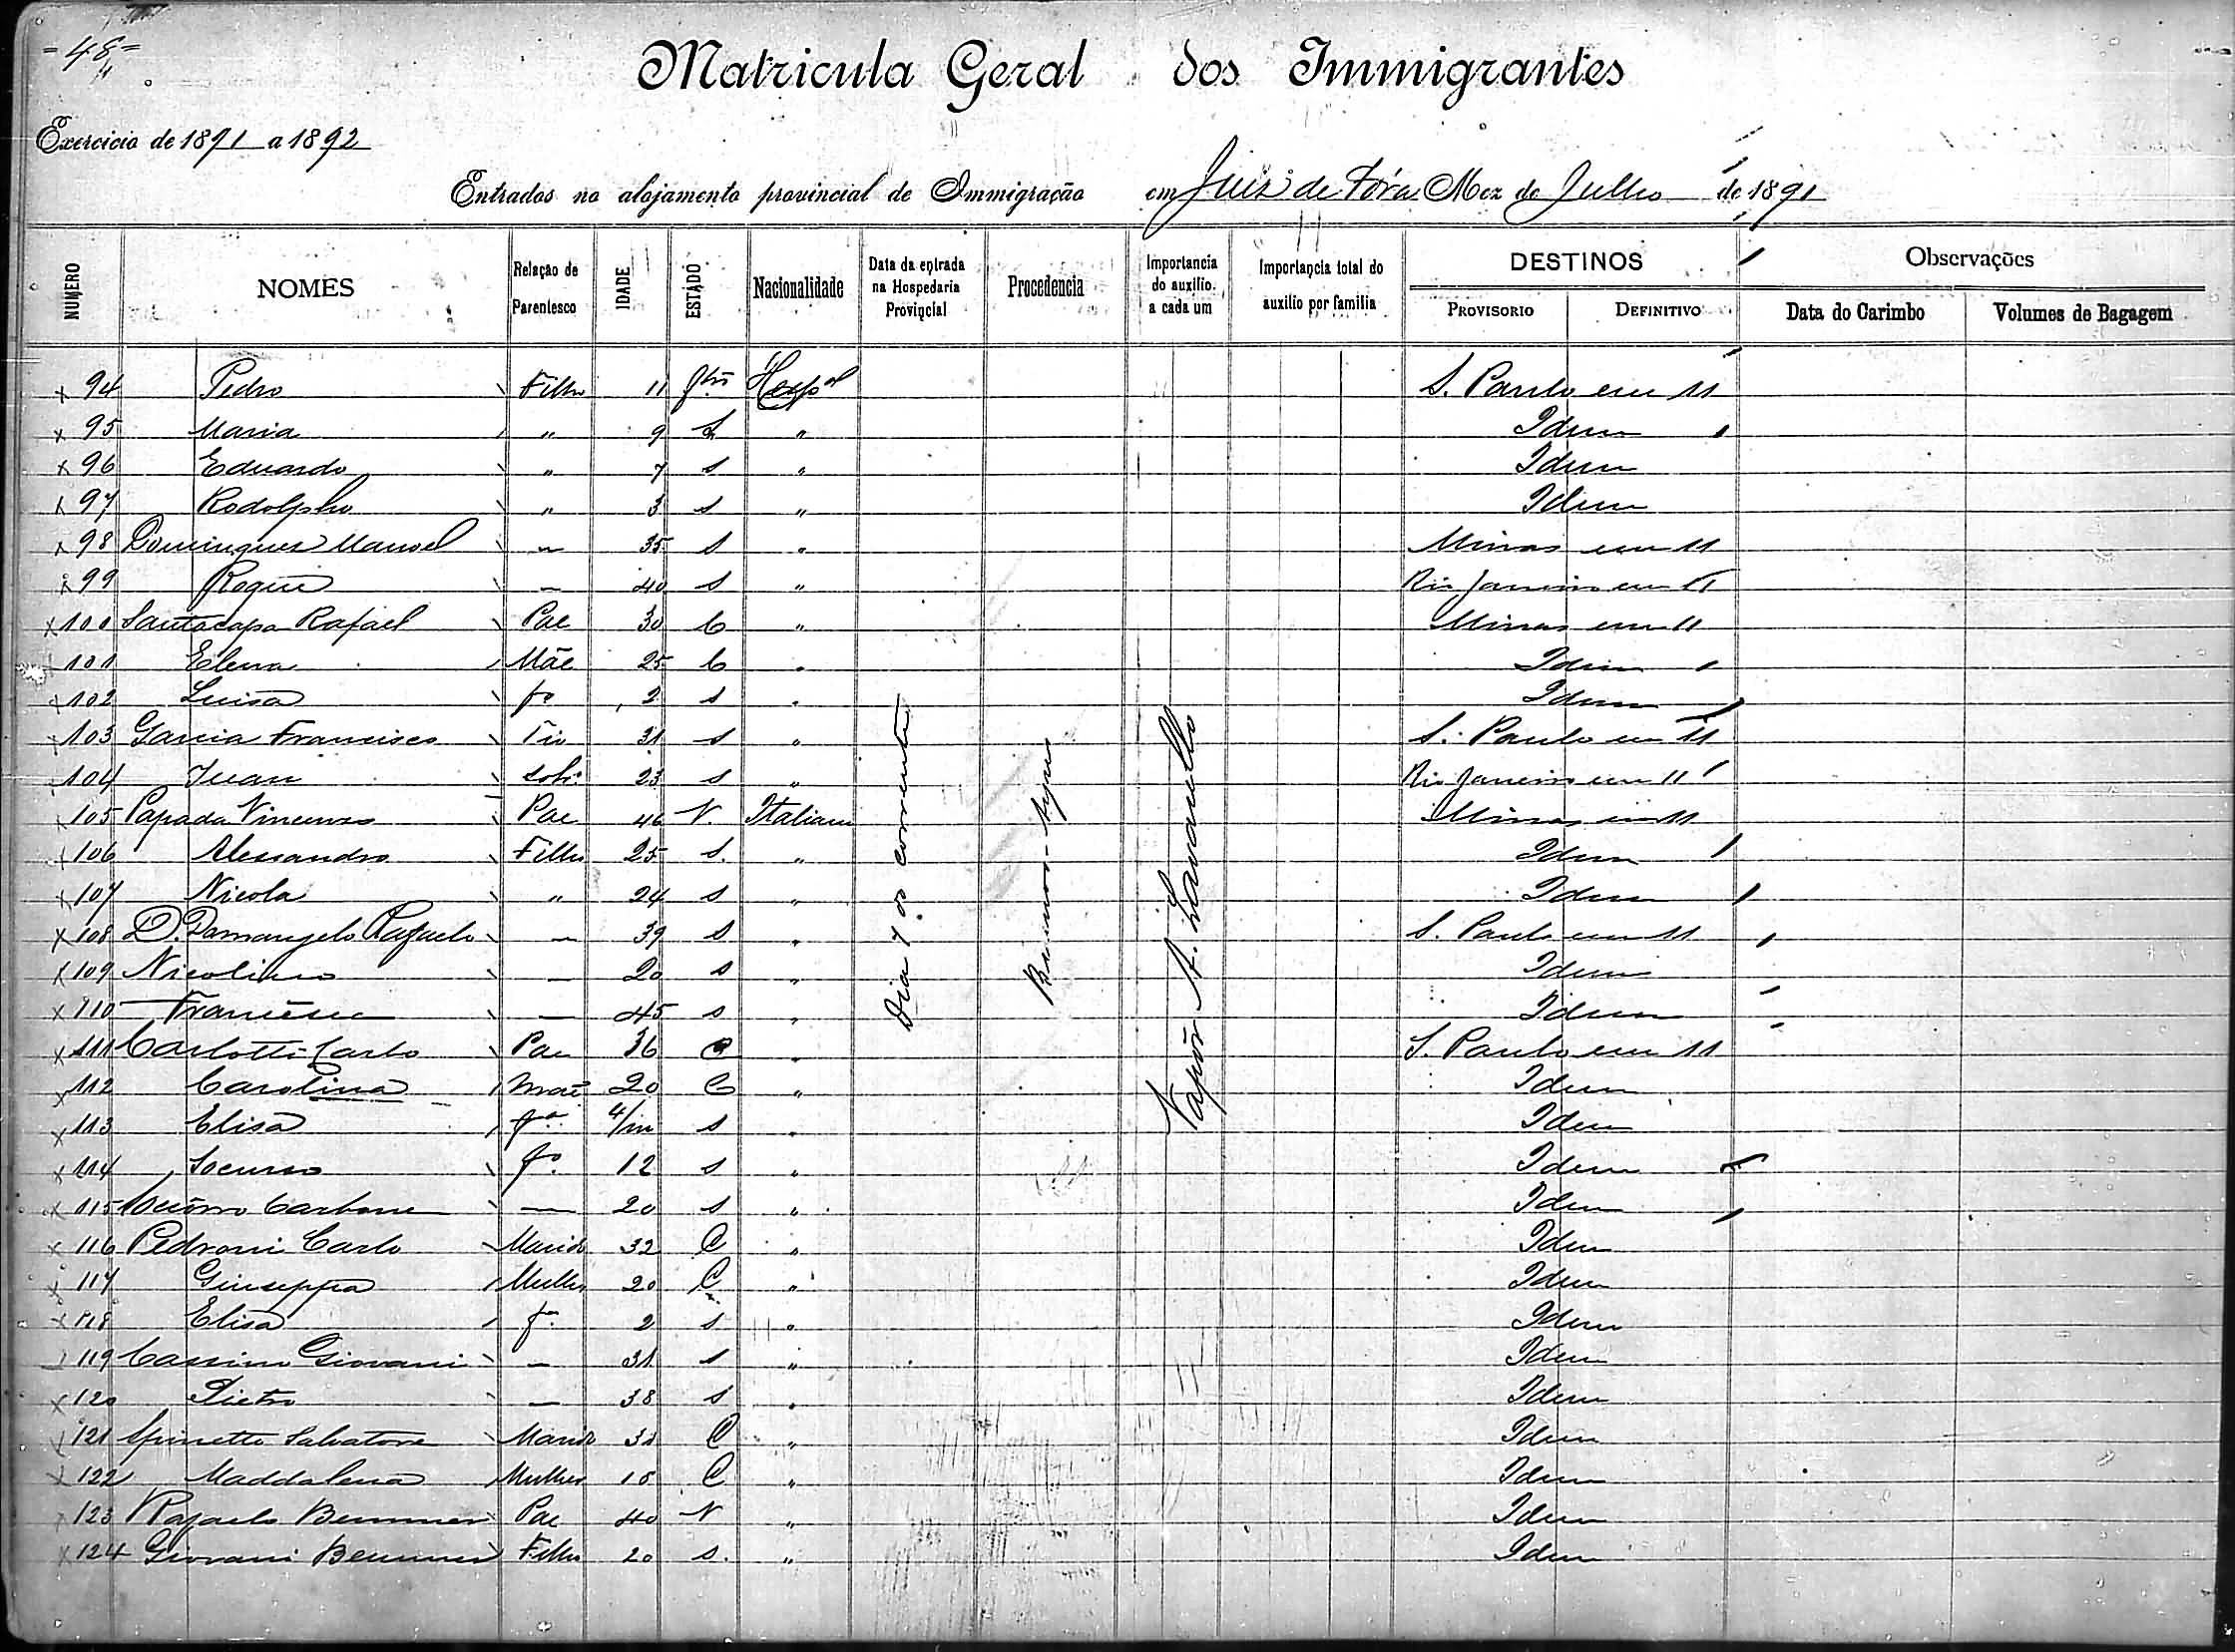 - 48 =
Matricula Geral dos Immigrantes
Exercicio de 1891 a 1892
Entrados no alojamento provincial de Immigração em Juiz de Fóra Mez de Julho de 1891
NUMERO NOMES Relação de Parentesco IDADE ESTADO Nacionalidade Data da entrada na Hospedaria Provincial Procedencia Importancia do auxilio a cada um Importancia total do auxilio por familia DESTINOS PROVISORIO DEFINITIVO Observações Data do Carimbo Volumes de Bagagem
x 94 Pedro Filho 11 Hesp.ol S. Paulo em 11
x 95 Maria " 9 S " Idem
x 96 Eduardo " 7 s " Idem
x 97 Rodolpho " 3 s " Idem
x 98 Domingues Manoel — 35 s " Minas em 11
x 99 Roque — 40 s " Rio Janeiro em 11
x 100 Rafael Pae 30 C " Minas em 11
101 Elena Mãe 25 C " Idem
x 102 Luisa fa 2 s " Idem
103 Garcia Francisco Tio 31 s " S. Paulo em 11
104 Juan sobr.o 23 s " Rio Janeiro em 11
105 Papada Vincenzo Pae 46 V. Italiana Minas em 11
106 Alessandro Filho 25 s. " Idem
x 107 Nicola " 24 s " Idem
x 108 D. Damangelo Rafaelo — 39 s " S. Paulo em 11
x 109 Nicolino — 20 s " Idem
x 110 Francesco — 45 s " Idem
x 111 Carlotti Carlo Pae 36 C " S. Paulo em 11
x 112 Carolina Mãe 20 C " Idem
x 113 Elisa fa 4/m s " Idem
x 114 fo 12 s " Idem
x 115 Carbone — 20 s " Idem
x 116 Pedroni Carlo Marido 32 C " Idem
x 117 Giuseppa Mulher 20 C " Idem
x 118 Elisa fa 2 s " Idem
119 Cassino Giovani — 31 s " Idem
x 120 Pietro — 38 s " Idem
x 121 Spinetto Salvatore Marido 31 C " Idem
x 122 Maddalena Mulher 18 C " Idem
x 123 Rafaelo Pae 40 V " Idem
x 124 Giovani Filho 20 s. " Idem
Dia 7 do corrente
Buenos-Ayres
Vapôr A. Lavarello